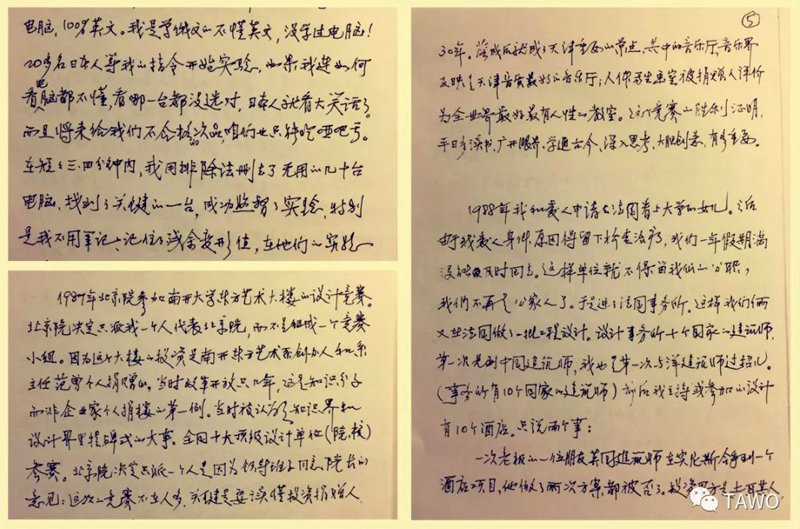 电脑，100%英文。我是学俄文的不懂英文，没学过电脑！
20多名日本人等我的指令开始实验，如果我连如何
看电脑都不懂，看哪一台都没选对，日本人就看大笑话了。
而且将来给我们不合格的次品，咱们也只能吃哑吧亏。
在短短三、四分钟内，我用排除法删去了无用的几十台
电脑，找到了关键的一台，成功监督了实验，特别
是我不用笔记，记住了残余变形值，在他们的实验
1987年北京院参加南开大学东方艺术大楼的设计竞赛。
北京院决定只派我一个人代表北京院，而不是组成一个竞赛
小组。因为这个大楼的投资是南开东方艺术系创办人和系
主任范曾个人捐赠的。当时改革开放只几年，这是知识分子
而非企业家个人捐楼的第一例。当时被认为是知识界和
设计界里程碑式的大事。全国十大顶级设计单位（院、校）
参赛。北京院决定只派一个人是因为领导班子同意院长的
意见：这次竞赛不在人多，关键是要读懂投资捐赠人
⑤
30年。落成后就成了天津重要的景点，其中的音乐厅，音乐界
反映是天津音质最好的音乐厅；人体写生画室被捐赠人评价
为全世界最好最有人性的教室。这个竞赛的胜利证明，
平日多读书、广开眼界、学通古今、深入思考、大胆创意，有多重要。
1988年我和爱人申请去法国看上大学的女儿。之后
由于我爱人身体原因得留下检查治疗，我们一年假期满
没能及时回去。这样单位就不得留我们的公职，
我们不再是公家人了。于是进了法国事务所。这样我们俩
又在法国做了一批工程设计。设计事务所十个国家的建筑师
第一次见到中国建筑师，我也是第一次与洋建筑师过招儿。
（事务所有10个国家的建筑师）前后我主持或参加的设计
有10个酒店。只说两个事：
一次老板的一位朋友英国建筑师在突尼斯拿到一个
酒店项目，他做了两次方案都被否了，投资
TAWO